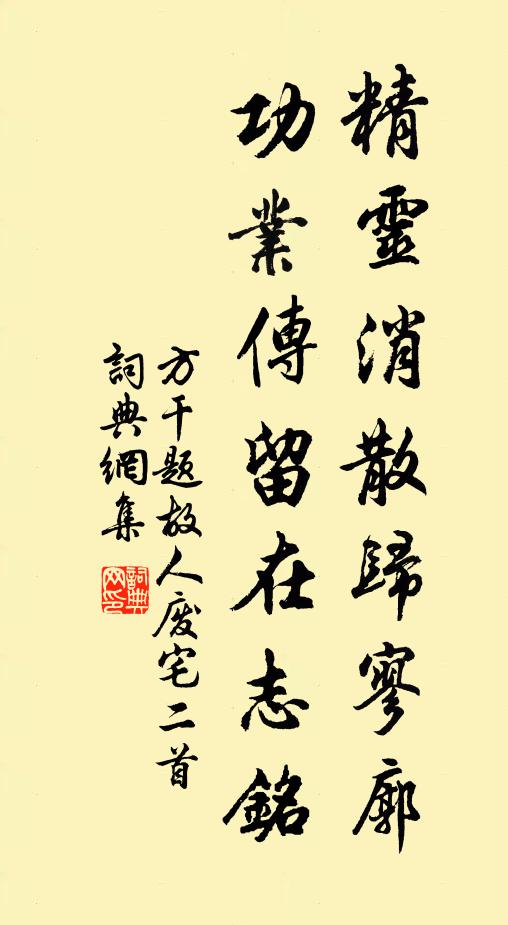 精靈消散歸寥廓
功業傳留在志銘
方干题故人废宅二首
詞典網集
詞典網印